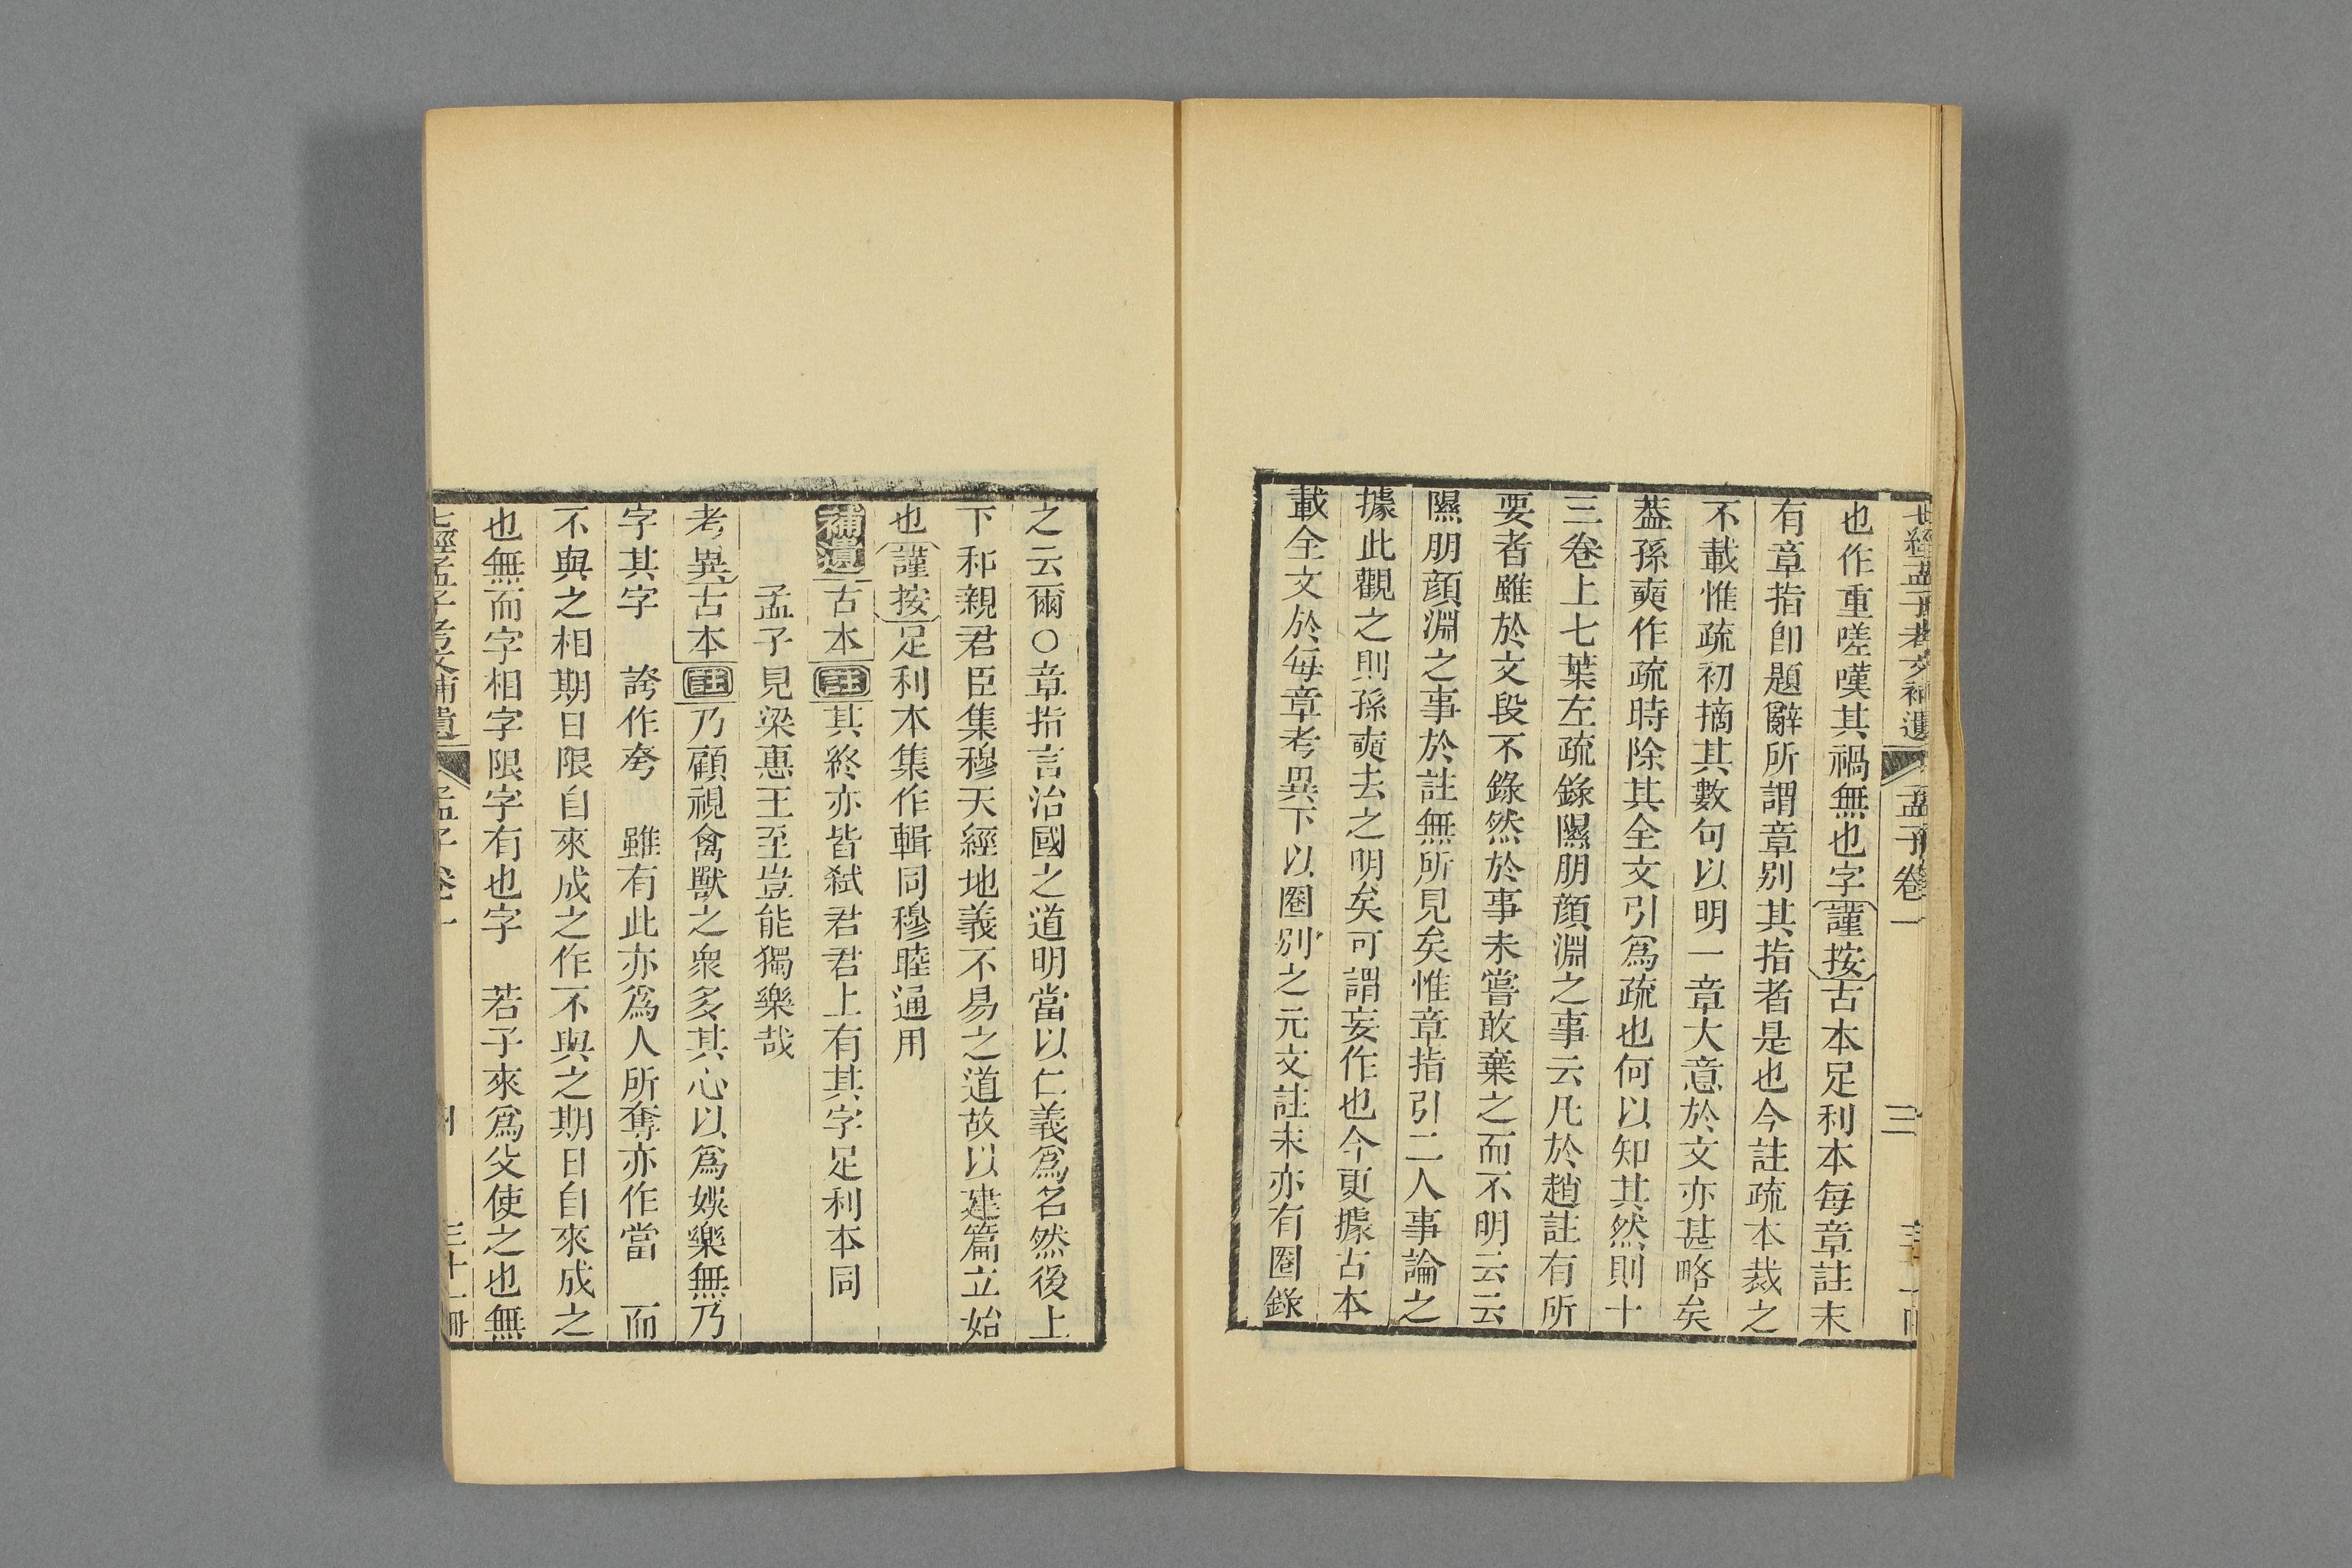 七經孟子考文補遺 孟子卷一 三
也作重嗟嘆其禍無也字謹按古本足利本每章註末
有章指卽題辭所謂章别其指者是也今註疏本裁之
不載惟疏初摘其數句以明一章大意於文亦甚略矣
葢孫奭作疏時除其全文引爲疏也何以知其然則十
三卷上七葉左疏錄隰朋顔淵之事云凡於趙註有所
要者雖於文段不錄然於事未嘗敢棄之而不明云云
隰朋顔淵之事於註無所見矣惟章指引二人事論之
據此觀之則孫奭去之明矣可謂妄作也今更據古本
載全文於每章考異下以圈别之元文註末亦有圈錄
之云爾○章指言治國之道明當以仁義爲名然後上
下和親君臣集穆天經地義不易之道故以建篇立始
也謹按足利本集作輯同穆睦通用
補遺古本註其終亦皆弑君君上有其字足利本同
孟子見梁惠王至豈能獨樂哉
考異古本註乃顧視禽獸之衆多其心以爲娛樂無乃
字其字 誇作夸 雖有此亦爲人所奪亦作當 而
不與之相期日限自來成之作不與之期日自來成之
也無而字相字限字有也字 若子來爲父使之也無
七經孟子考文補遺 孟子卷一 三十一冊